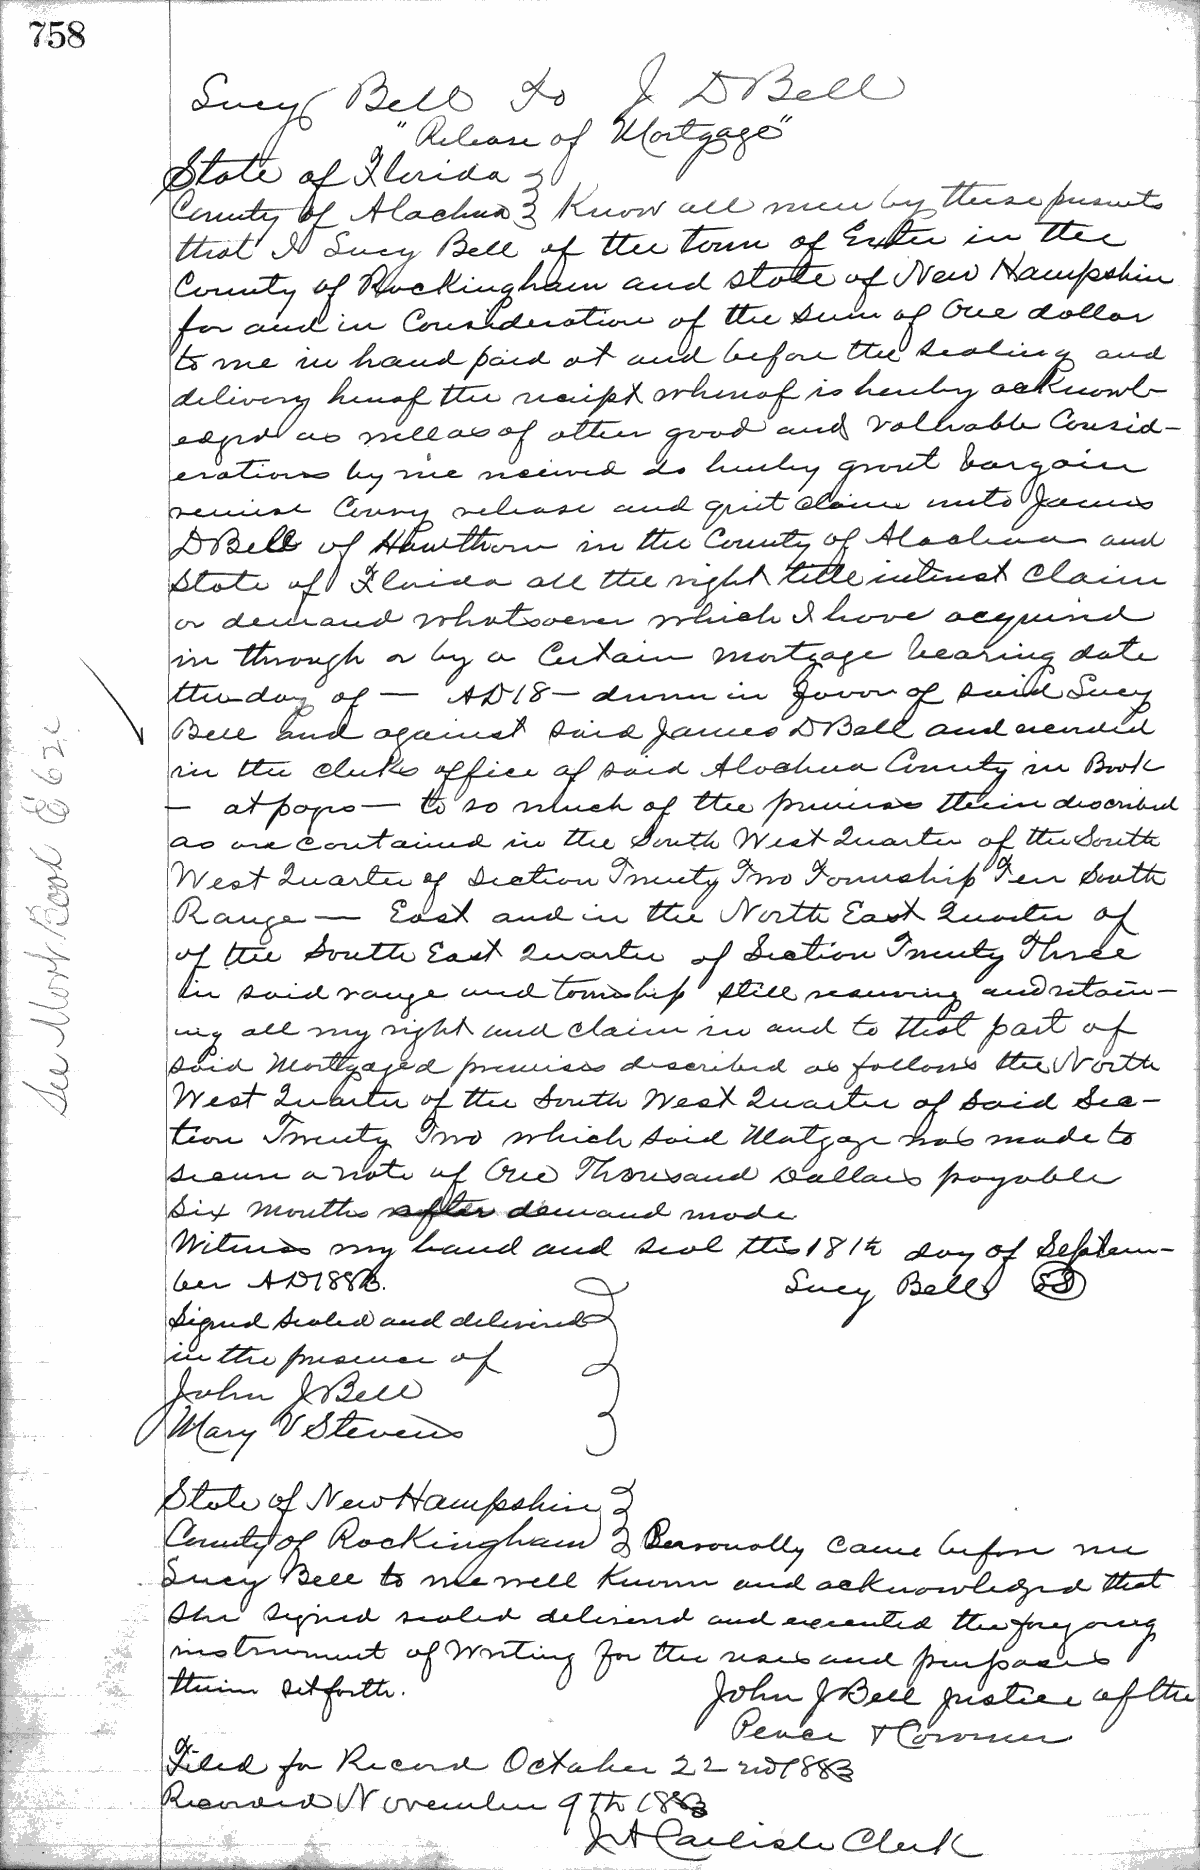 758
Lucy Bell To J D Bell
"Release of Mortgage"
State of Florida }
County of Alachua } Know all men by these presents
that I Lucy Bell of the town of Exeter in the
County of Rockingham and state of New Hampshire
for and in Consideration of the sum of One dollar
to me in hand paid at and before the sealing and
delivery hereof the receipt whereof is hereby acknowl-
edged as well as of other good and valuable Consid-
erations by me received do hereby grant bargain
remise Convey release and quit claim unto James
D Bell of Hawthorn in the County of Alachua and
State of Florida all the right title interest Claim
or demand whatsoever which I have acquired
in through or by a Certain mortgage bearing date
the day of — AD 18 — drawn in favor of said Lucy
Bell and against said James D Bell and recorded
in the clerks office of said Alachua County in Book
— at page — to so much of the premises therein described
as are contained in the South West Quarter of the South
West Quarter of Section Twenty Two Township Ten South
Range — East and in the North East Quarter of
of the South East Quarter of Section Twenty Three
in said range and township still reserving and retain-
ing all my right and claim in and to that part of
said Mortgaged premises described as follows the North
West Quarter of the South West Quarter of said Sec-
tion Twenty Two which said Matgage was made to
secure a note of One Thousand Dollars payable
six months after demand made
Witness my hand and seal this 18th day of Septem-
ber AD 1883. Lucy Bell
Signed sealed and delivered
in the presence of
John J Bell
Mary V Stevens
State of New Hampshire }
County of Rockingham } Personally came before me
Lucy Bell to me well known and acknowledged that
she signed sealed delivered and executed the foregoing
instrument of Writing for the uses and purposes
therein set forth. John J Bell Justice of the
Peace & Coroner
Filed for Record October 22nd 1883
Recorded November 9Th 1883
J A Carlisle Clerk
See Mort Book